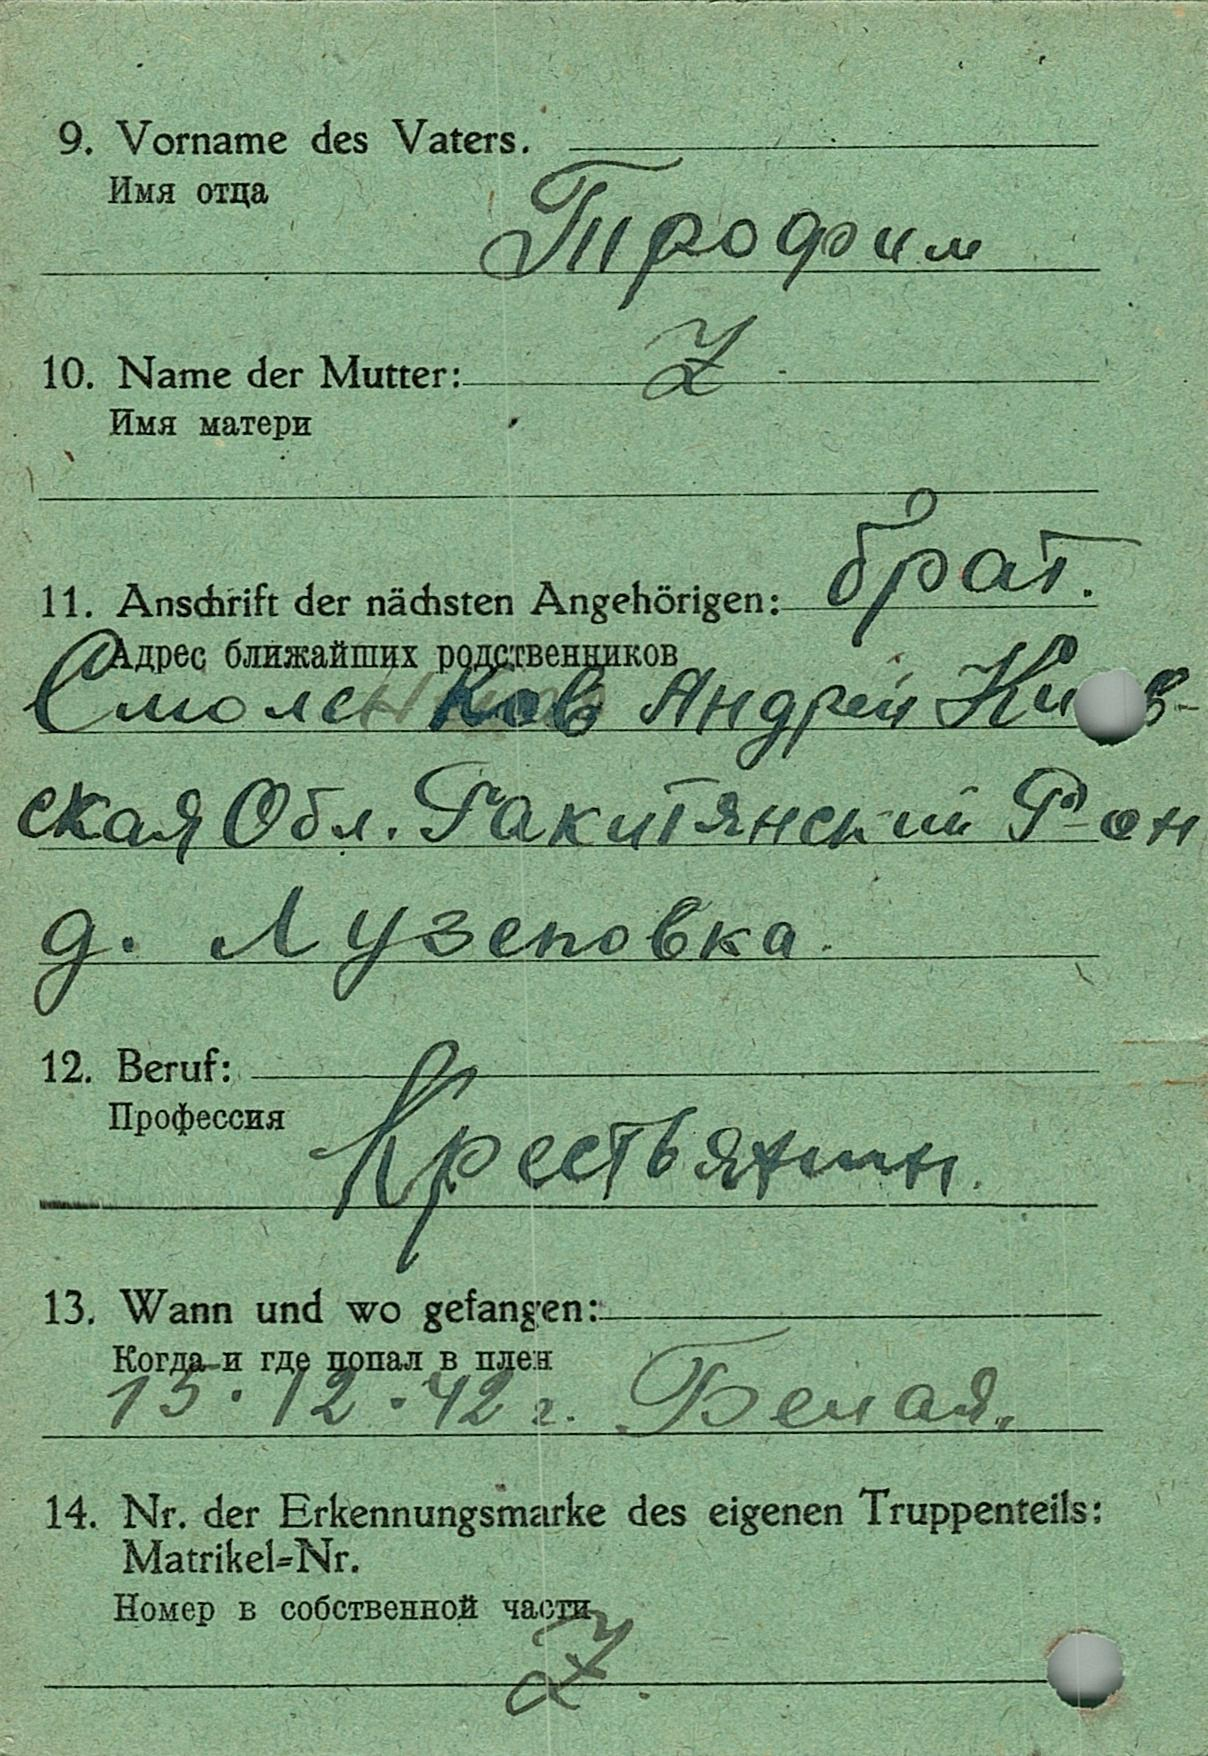 9. Vorname des Vaters.
Имя отца
Трофим
10. Name der Mutter: Z
Имя матери
11. Anschrift der nächsten Angehörigen: брат.
Адрес ближайших родственников
Смоленков Андрей Киев-
ская Обл. Ракитянский Р-он
д. Лузеповка.
12. Beruf:
Профессия
Крестьянин.
13. Wann und wo gefangen:
Когда и где попал в плен
15.12.42 г. Белая.
14. Nr. der Erkennungsmarke des eigenen Truppenteils:
Matrikel=Nr.
Номер в собственной части
Z.